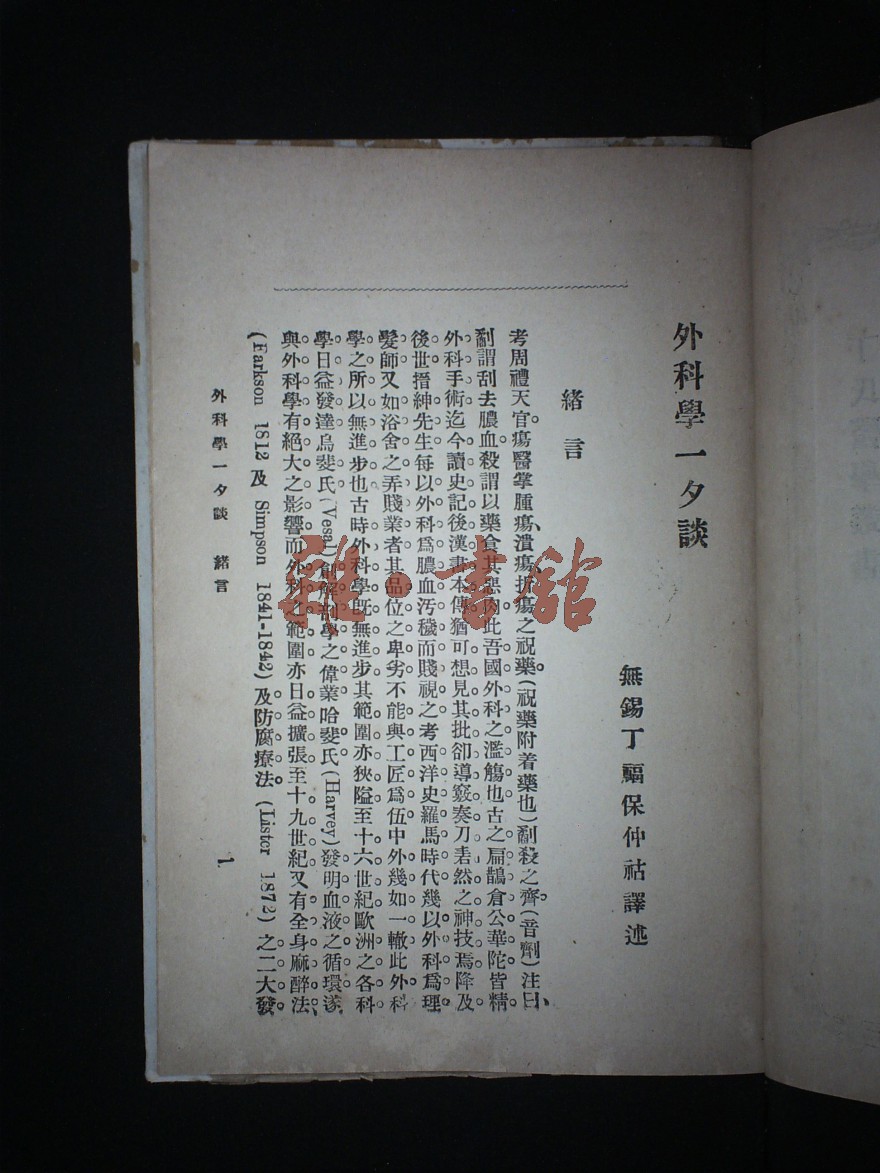 外科學一夕談
無錫丁福保仲祜譯述
緒言
考周禮天官瘍醫掌腫瘍、潰瘍、折瘍之祝藥(祝藥附着藥也)劀殺之齊(音劑)注曰、
劀謂刮去膿血殺謂以藥食其惡肉此吾國外科之濫觴也古之扁鵲倉公華陀皆精
外科手術迄今讀史記後漢書本傳猶可想見其批卻導窾奏刀砉然之神技焉降及
後世搢紳先生每以外科爲膿血汚穢而賤視之考西洋史羅馬時代幾以外科爲理
髮師又如浴舍之弄賤業者其品位之卑劣不能與工匠爲伍中外幾如一轍此外科
學之所以無進步也古時外科學既無進步其範圍亦狹隘至十六世紀歐洲之各科
學日益發達烏斐氏(Vesal)創解剖學之偉業哈斐氏(Harvey)發明血液之循環遂
與外科學有絕大之影響而外科之範圍亦日益擴張至十九世紀又有全身麻醉法、
(Farkson 1812 及 Simpson 1841-1842)及防腐療法(Lister 1872)之二大發
外科學一夕談 緒言
1
雜·書館